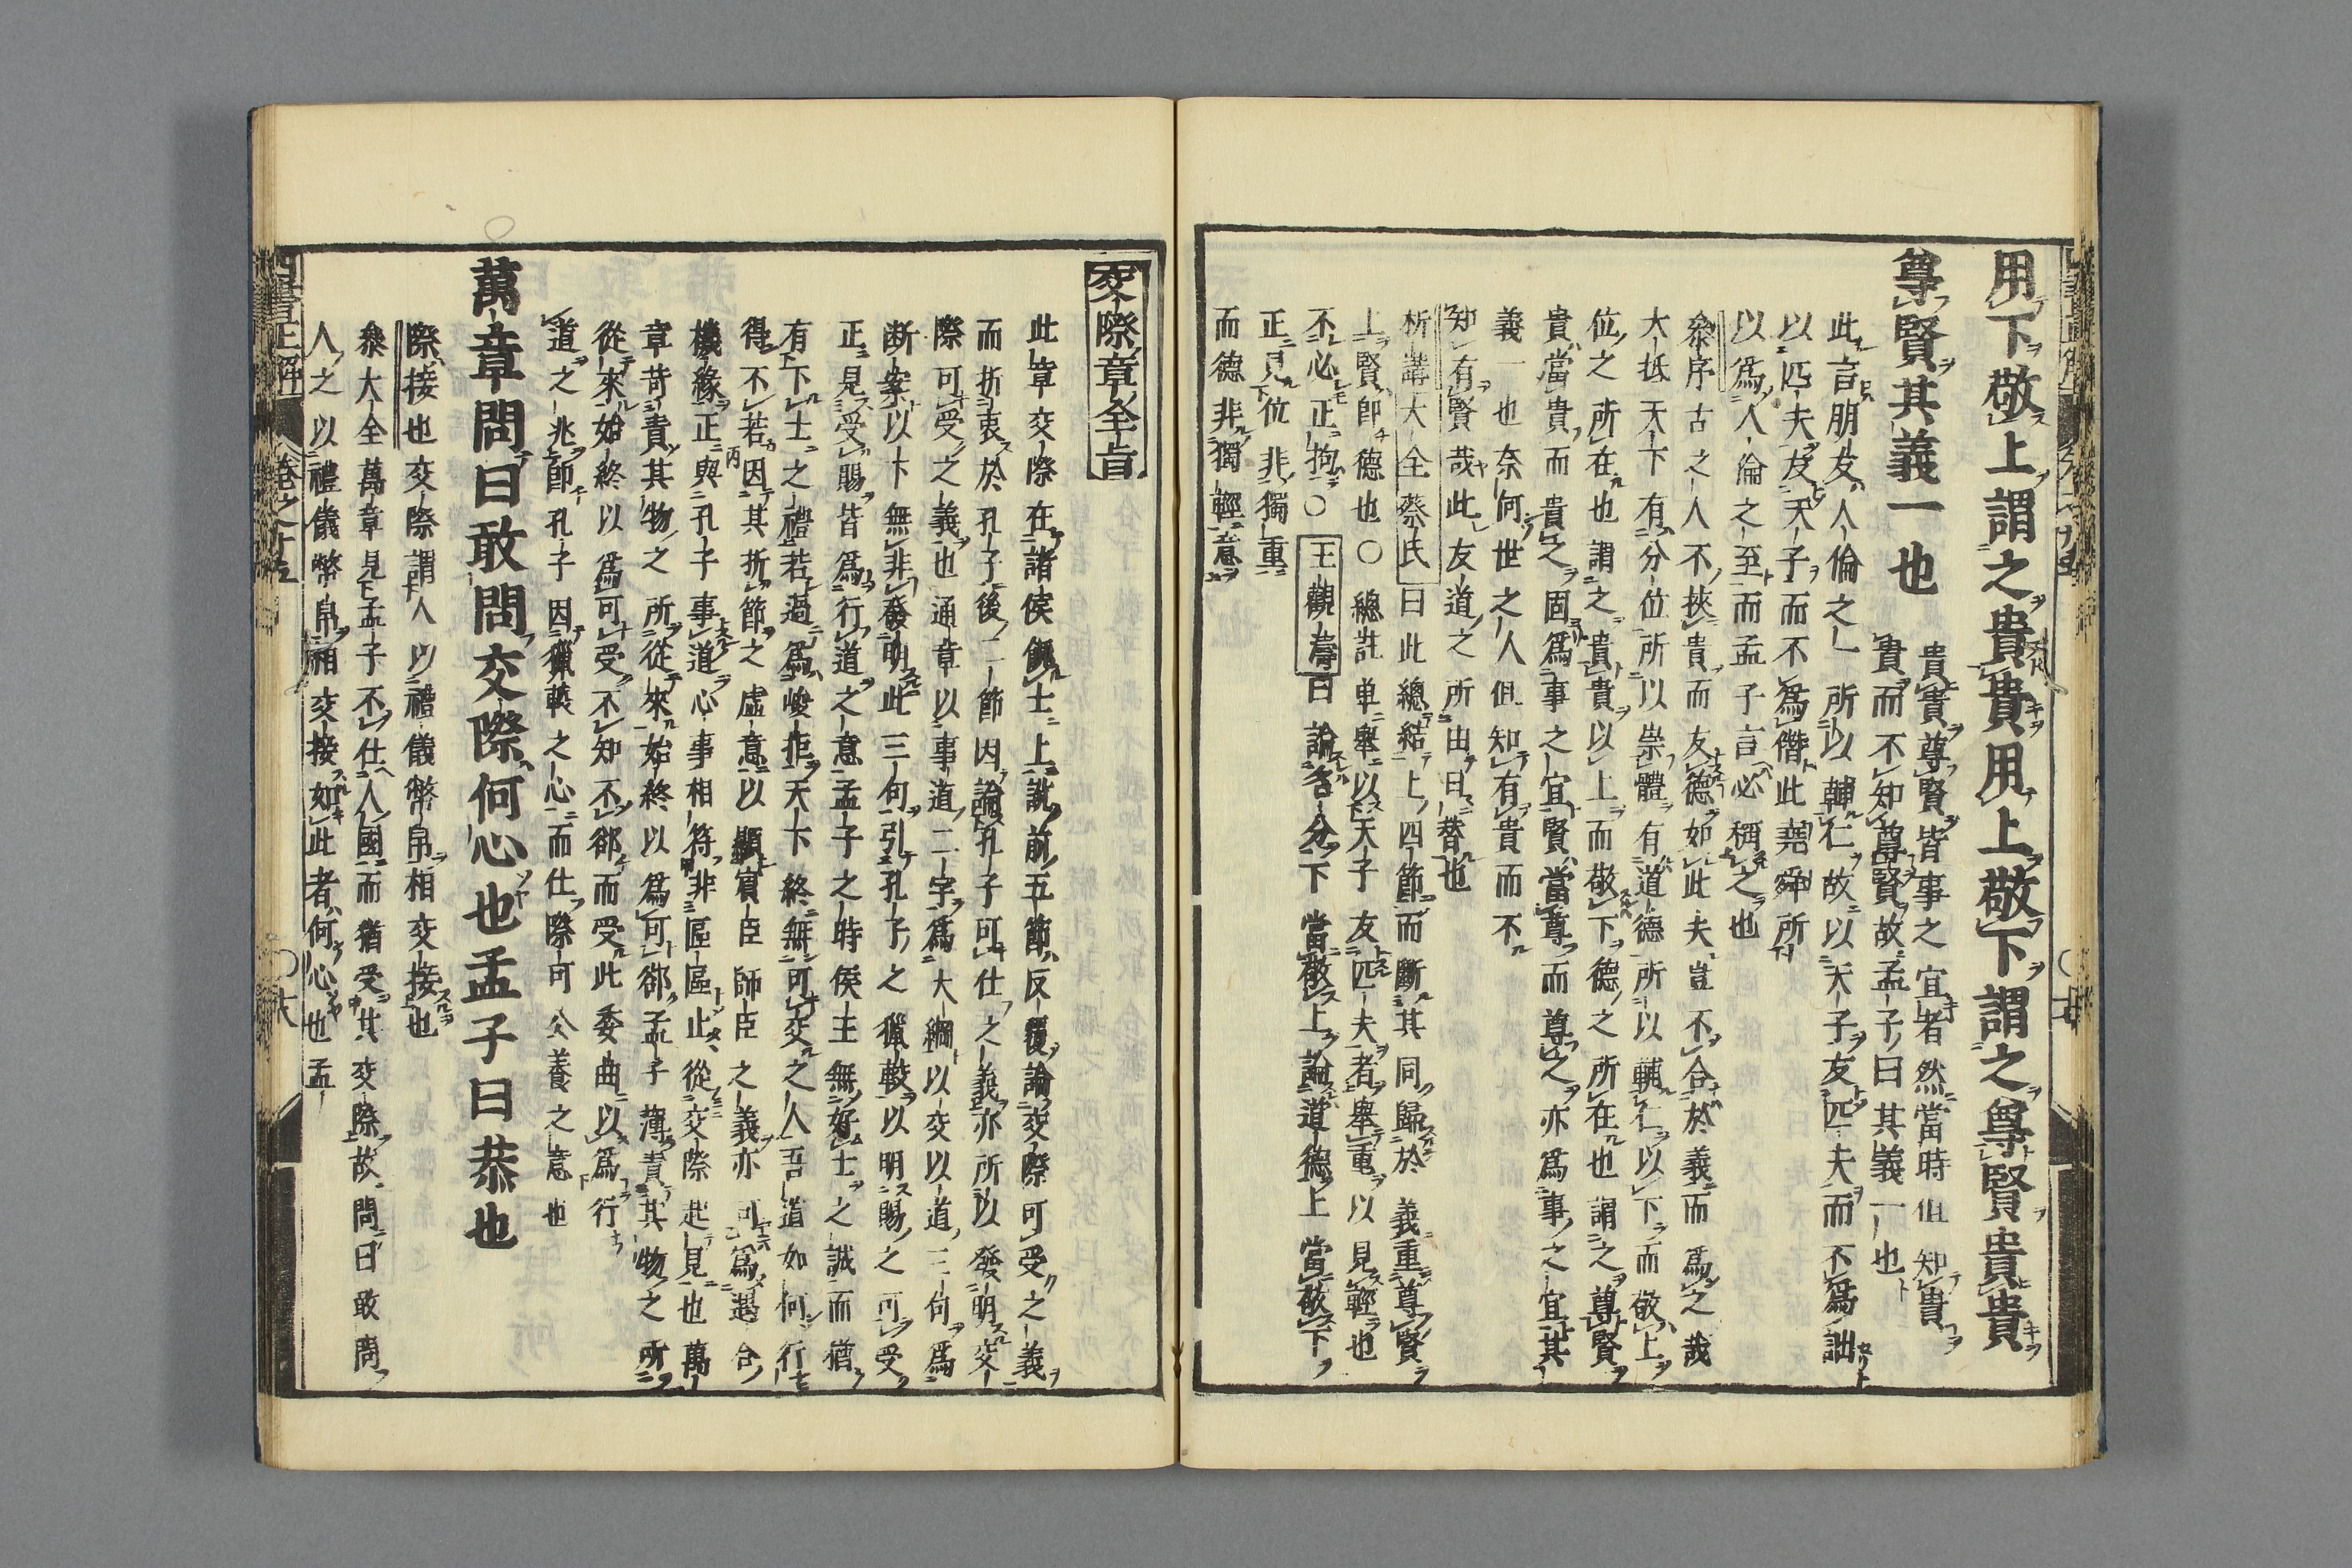 用下敬上謂之貴貴用上敬下謂之尊賢貴貴
尊賢其義一也
貴貴尊賢皆事之宜者然當時但知貴
貴而不知尊賢故孟子曰其義一也
此言朋友人倫之一所以輔仁故以天子友匹夫而不爲詘
以匹夫友天子而不爲僭此堯舜所
以爲人倫之至而孟子言必稱之也
叅序古之人不挾貴而友德如此夫豈不合於義而爲之哉
大抵天下有分位所以崇體有道德所以輔仁以下而敬上
位之所在也謂之貴貴以上而敬下德之所在也謂之尊賢
貴當貴而貴之固爲事之宜賢當尊而尊之亦爲事之宜其
義一也奈何世之人但知有貴而不
知有賢哉此友道之所由日替也
析講大全蔡氏曰此總結上四節而斷其同歸於義重尊賢
上賢卽德也〇總註单舉以天子友匹夫者舉重以見輕也
不必正拘〇王觀濤曰論名分下當敬上論道德上當敬下
正見位非獨重
而德非獨輕意
交際章全旨
此章交際在諸侯餽士上說前五節反覆論交際可受之義
而折衷於孔子後二節因論孔子可仕之義亦所以發明交
際可受之義也通章以事道二字爲大綱以交以道三句爲
断案以卞無非發明此三句引孔子之獵較以明賜之可受
正見受賜皆爲行道之意孟子之時侯王無好士之誠而猶
有下士之禮若過爲峻拒天下終無可交之人吾道如何行
得不若因其折節之虛意以顯賓臣師臣之義亦可爲遇合
機緣正與孔子事道心事相符非區區止從交際起見也萬
章苛責其物之所從來始終以爲可郤孟子薄責其物之所
從來始終以爲可受不知不郤而受此委曲以爲行
道之兆卽孔子因獵較之心而仕際可公養之意也
萬章問曰敢問交際何心也孟子曰恭也
際接也交際謂人以禮儀幣帛相交接也
叅大全萬章見孟子不仕人國而猶受其交際故問曰敢問
人之以禮儀幣帛相交接如此者何心也孟
四書正解
卷之十五
〇六